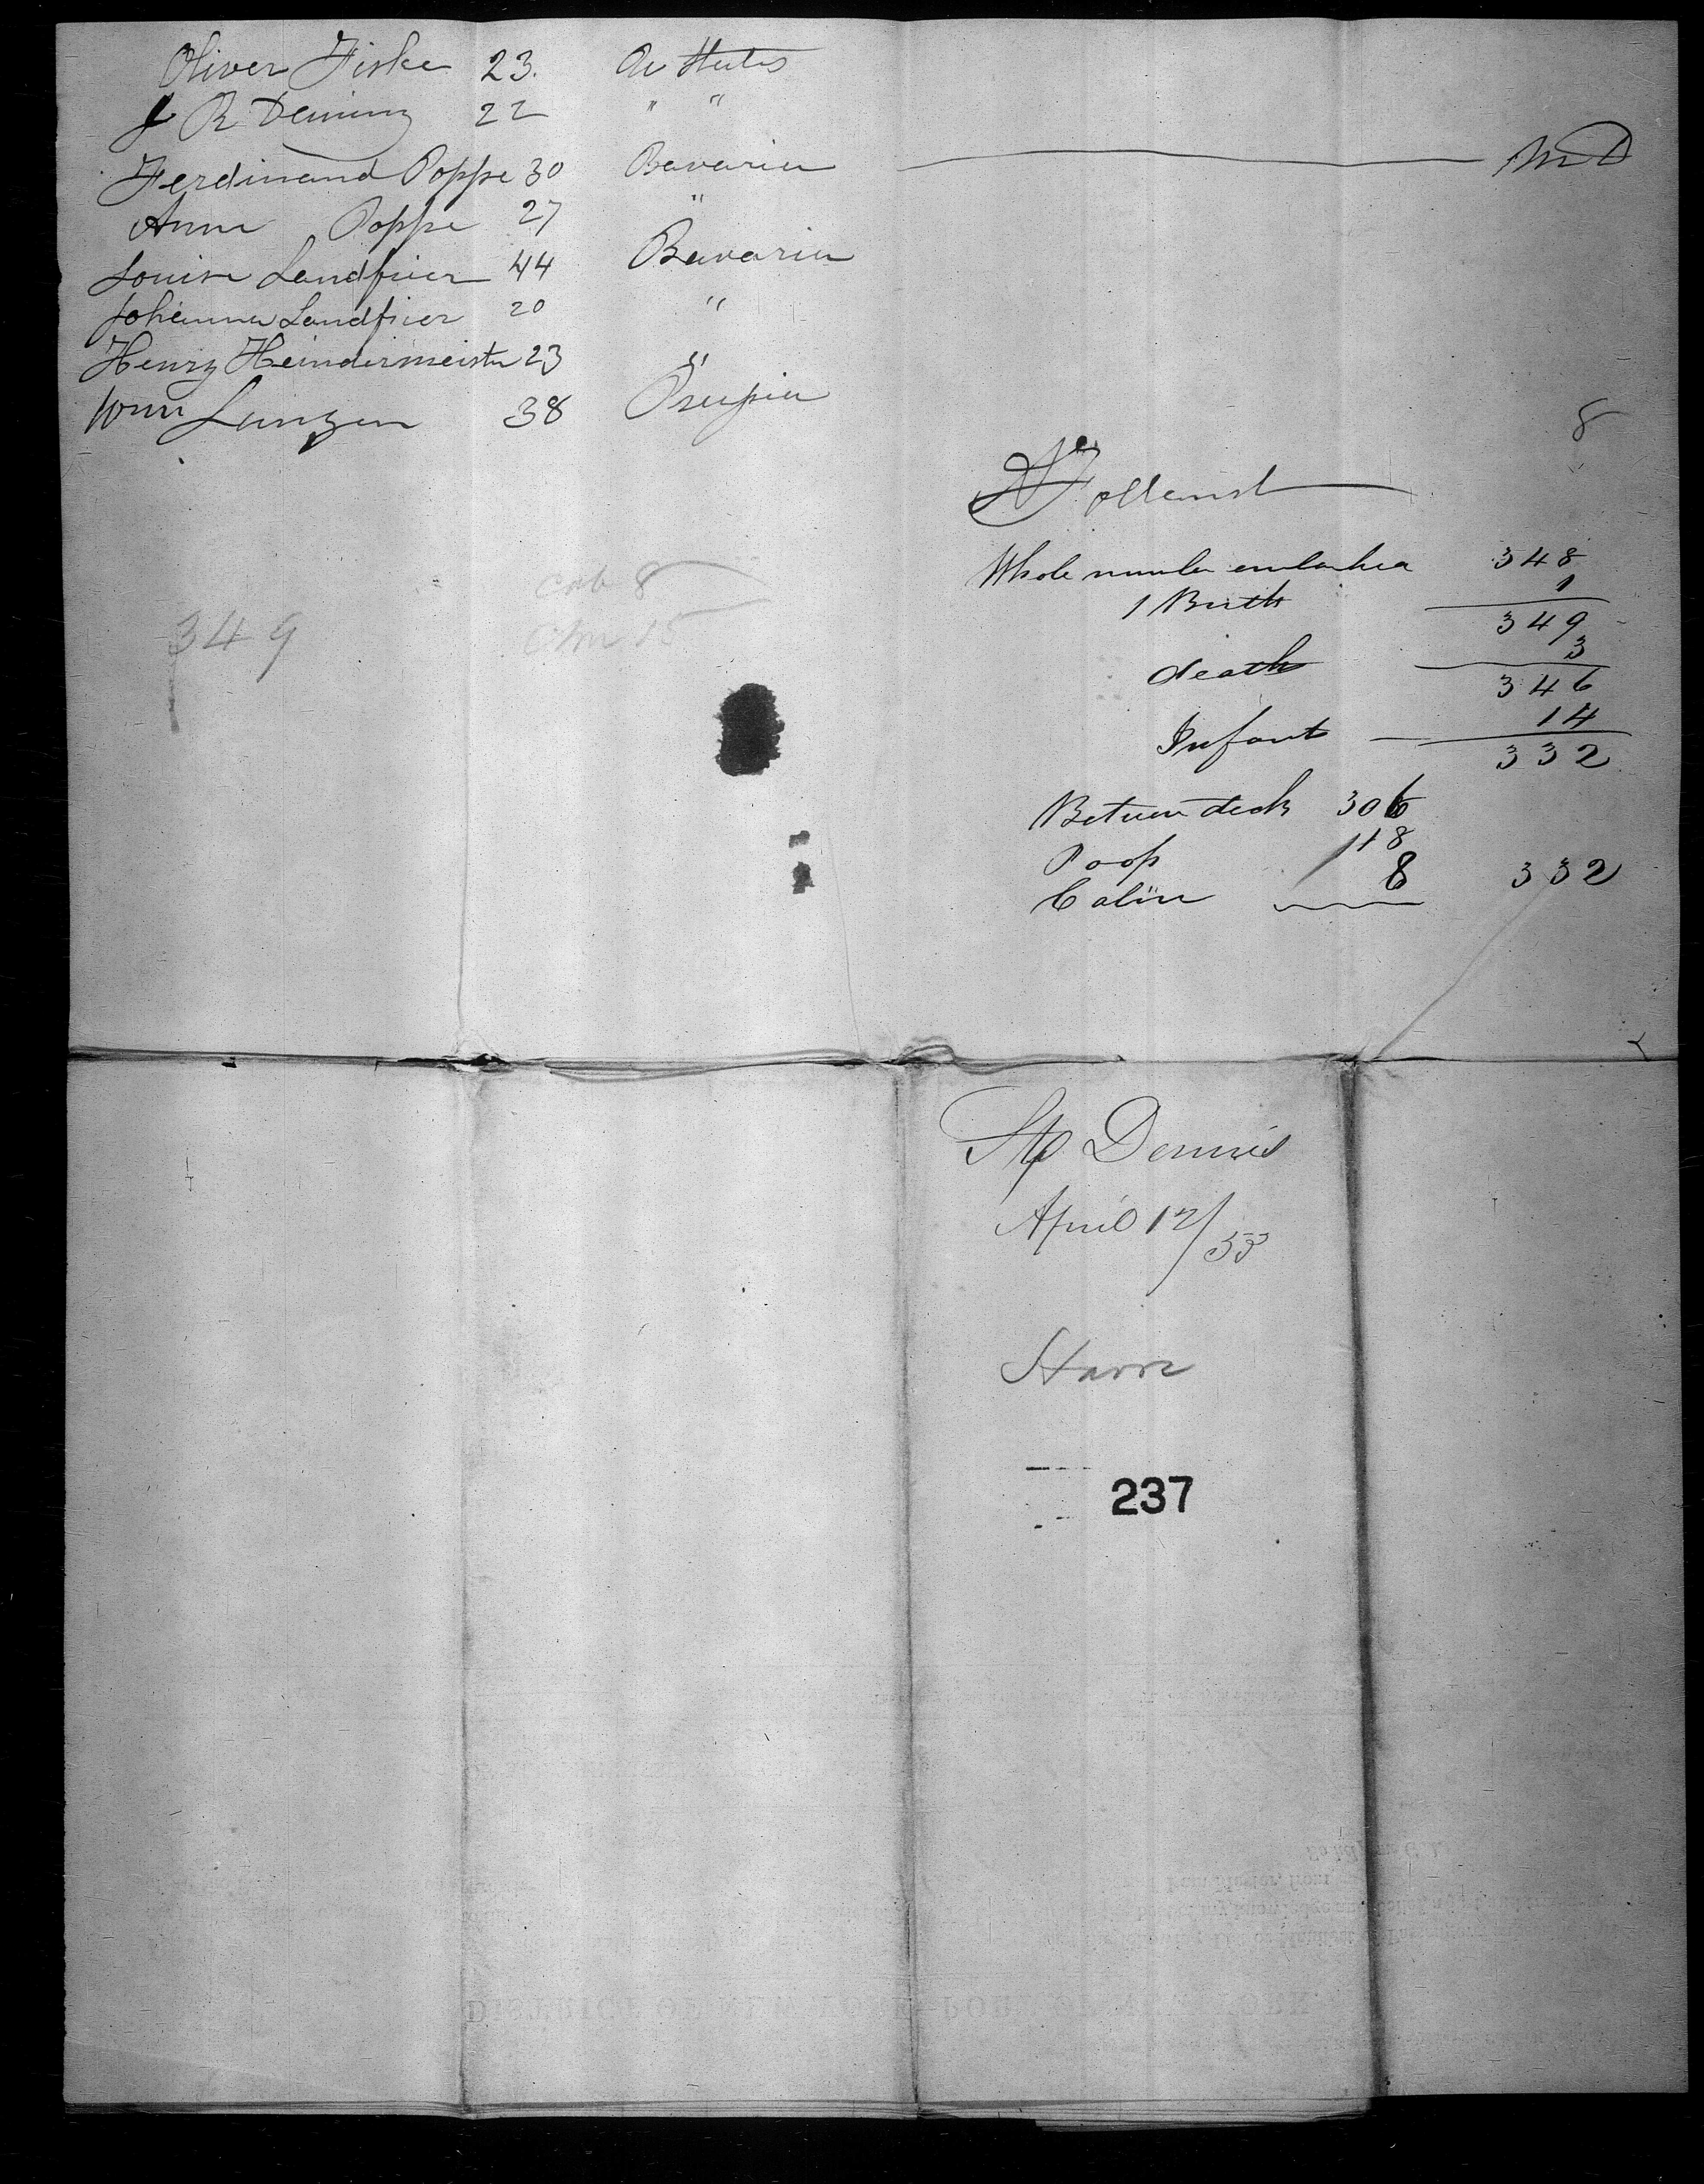 Oliver Fiske 23. U States
J R Deming 22 " "
Ferdinand Poppe 30 Bavaria — M D
Anna Poppe 27 "
Louise Landfrier 44 Bavaria
Johanna Landfrier 20 "
Henry Heindermeister 23 "
Wm Langen 38 Prussia
8
Holland
Whole number embarked 348
1 Birth 1
349
death 3
346
Infant — 14
332
Between deck 306
Poop 18
Cabin 8 332
cab 8
chn 15
349
Shp Dennis
April 12/53
Starr
237
DISTRICT OF NEW YORK—PORT OF NEW YORK